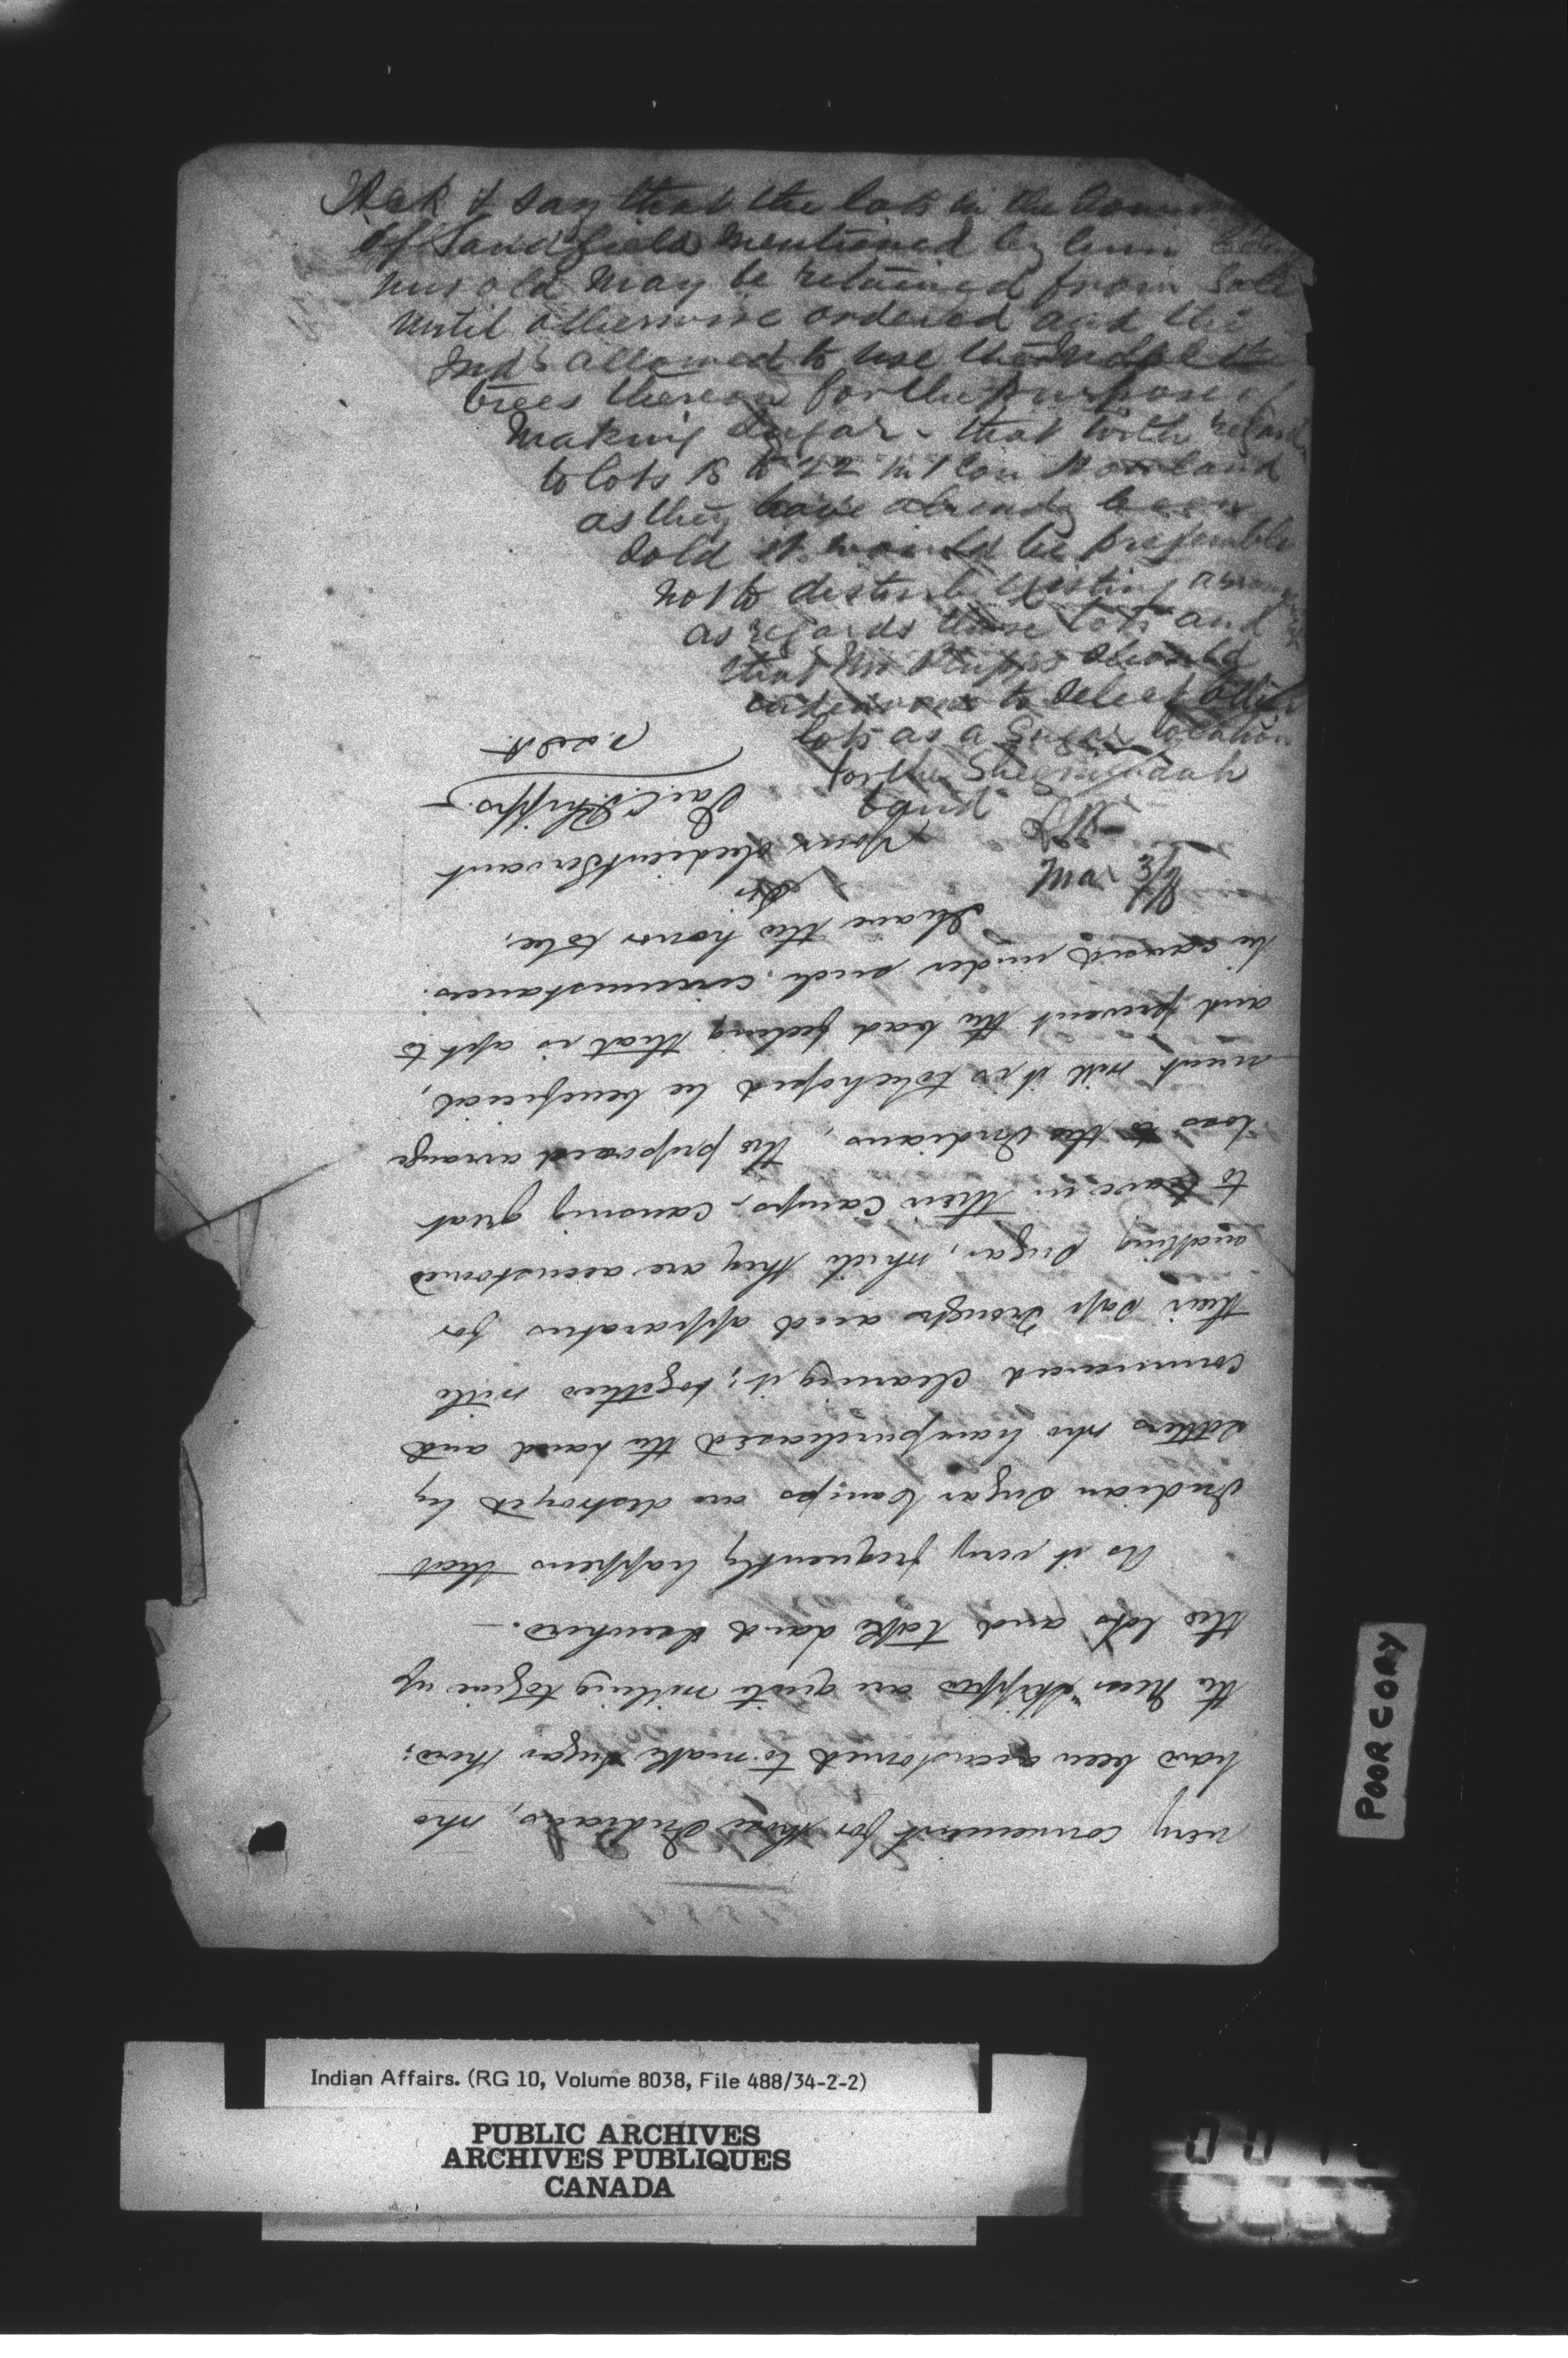 Ack & say that the lots in the Township
of Sandfield mentioned by him being
unsold may be retained from Sale
until otherwise ordered and the
Inds allowed to use the Maple
trees thereon for the purpose of
making Sugar - that with regard
to lots 18 to 22 in 1 Con Howland
as they have already been
sold it would be preferable
not to disturb existing
as regards those lots and
that Mr Phipps should
endeavour to select other
lots as a Sugar location
for the Sheguiandah
band
Mar
very convenient for those Indians, who
have been accustomed to make sugar there;
the are quite willing to give up
the lots and take land elsewhere.
As it very frequently happens that
Indian Sugar Camps are destroyed by
settlers who have purchased the land and
commenced clearing it; together with
their sap troughs and apparatus for
making sugar, which they are accustomed
to leave in their Camps, causing great
loss to the Indians, the proposed arrange
ment will it is to be hoped be beneficial,
and prevent the bad feeling that is apt to
be caused under such circumstances.
I have the honor to be,
Sir
Your obedient Servant
Jas. C. Phipps.
POOR COPY
Indian Affairs. (RG 10, Volume 8038, File 488/34-2-2)
PUBLIC ARCHIVES
ARCHIVES PUBLIQUES
CANADA